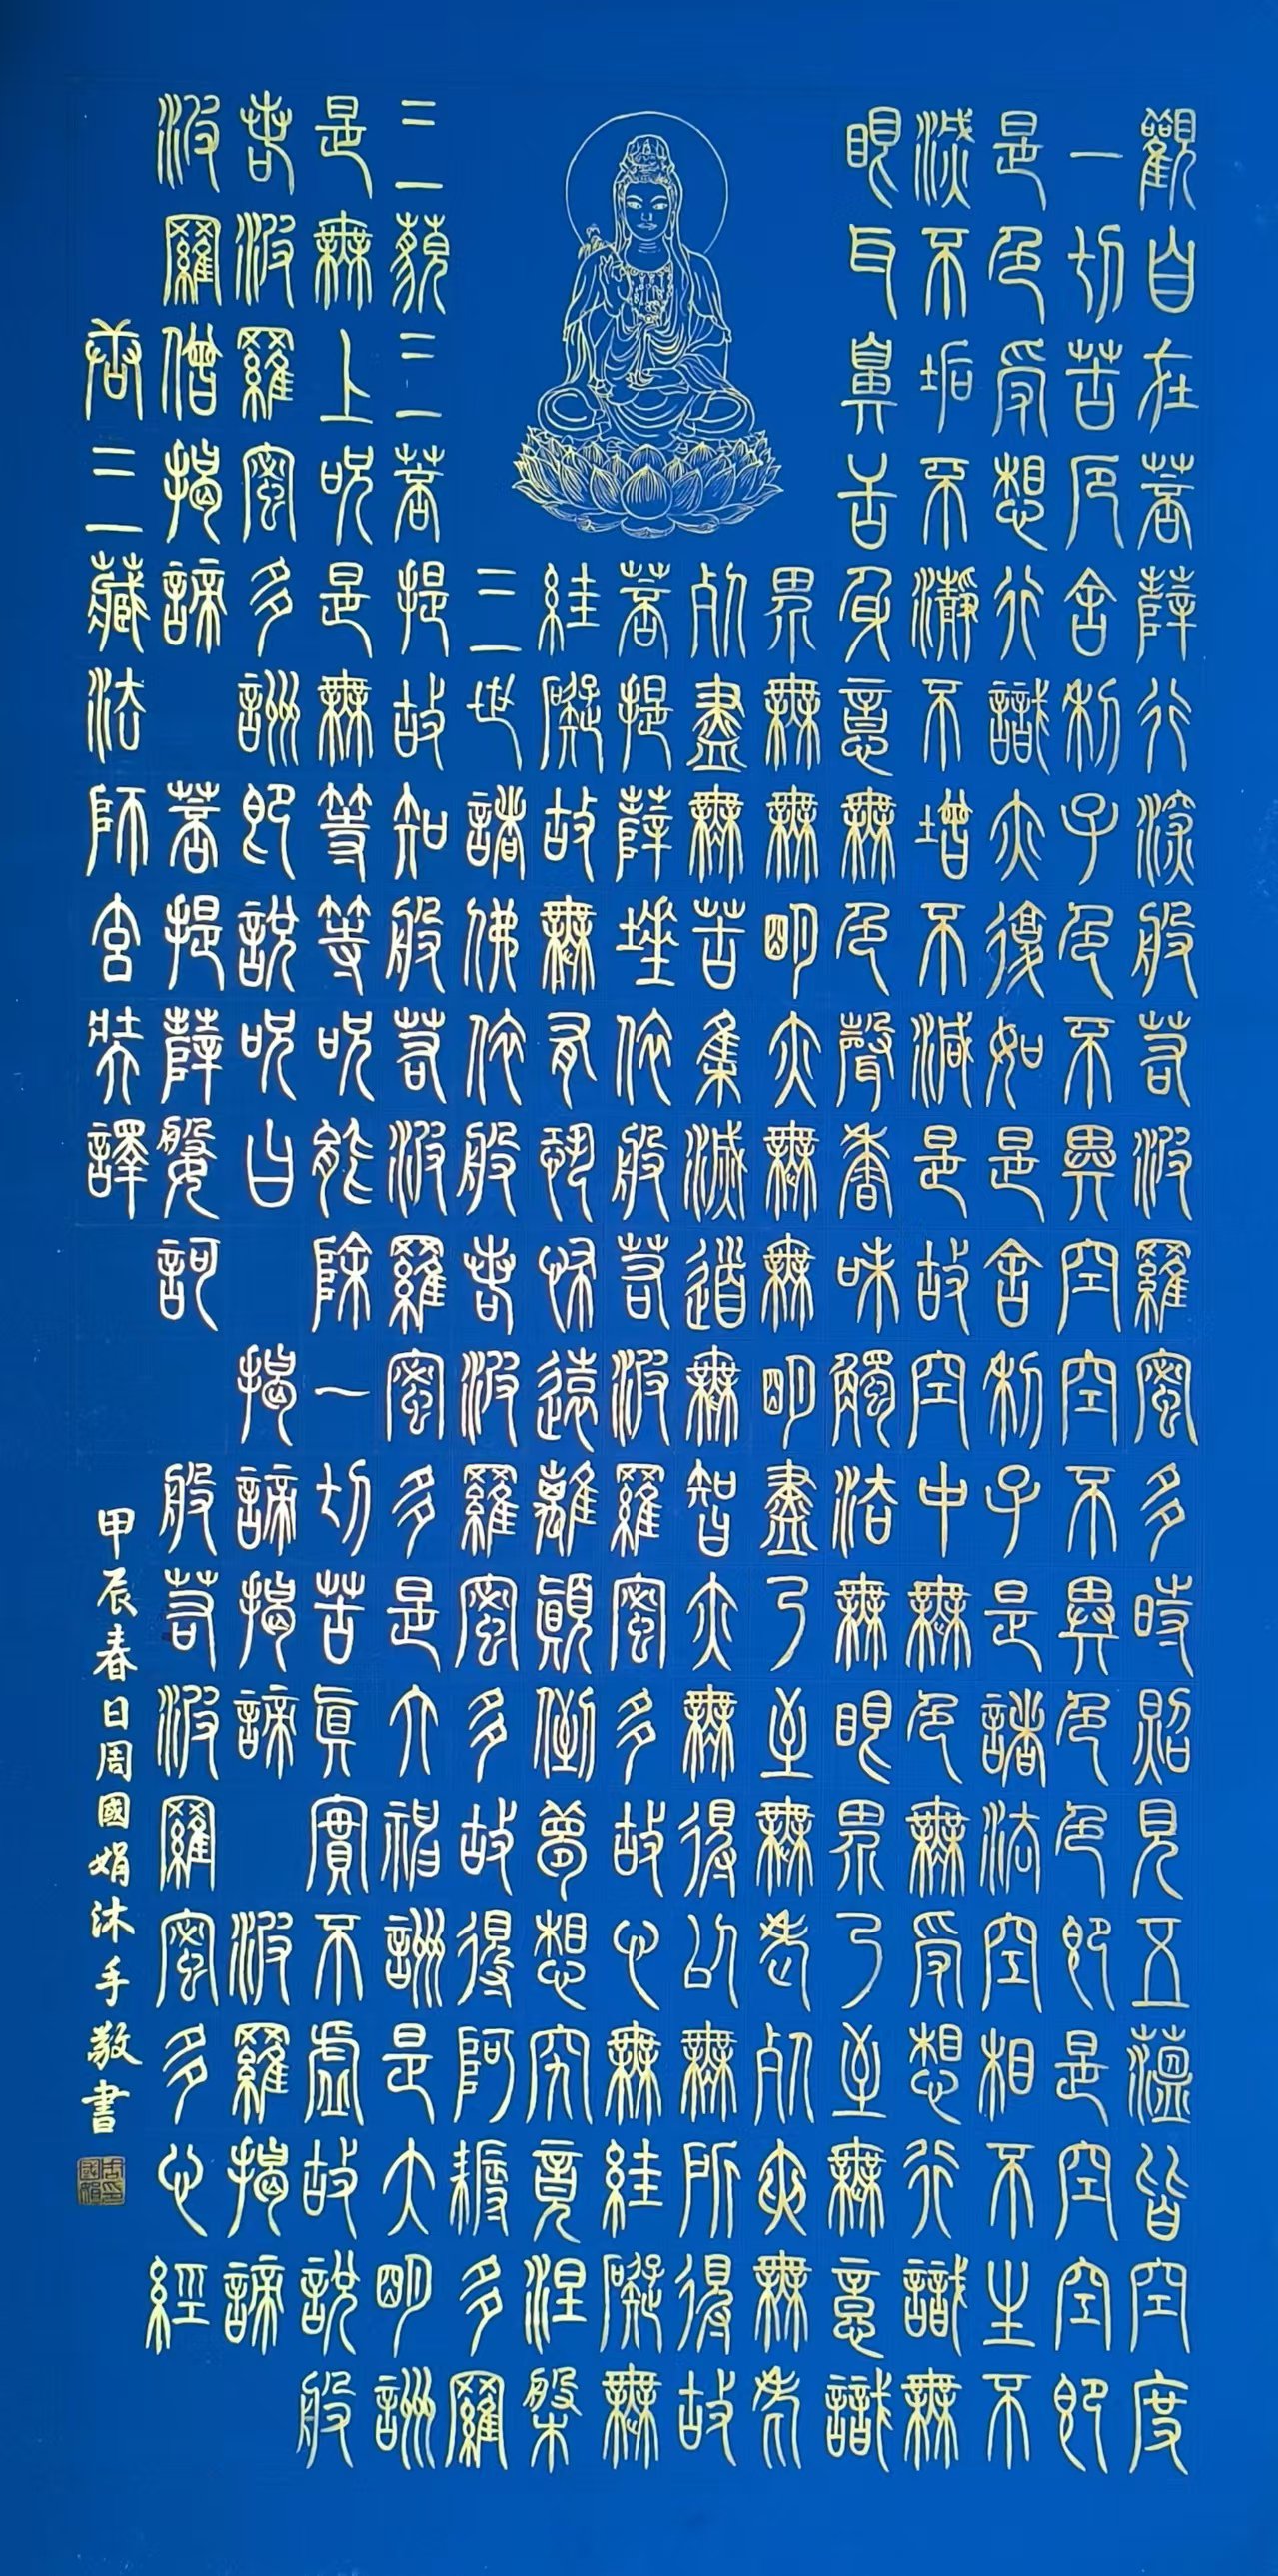 觀自在菩薩行深般若波羅蜜多時照見五蘊皆空度
一切苦厄舍利子色不異空空不異色色即是空空即
是色受想行識亦復如是舍利子是諸法空相不生不
滅不垢不淨不增不減是故空中無色無受想行識無
眼耳鼻舌身意無色聲香味觸法無眼界乃至無意識
界無無明亦無無明盡乃至無老死亦無老
死盡無苦集滅道無智亦無得以無所得故
菩提薩埵依般若波羅蜜多故心無罣礙無
罣礙故無有恐怖遠離顛倒夢想究竟涅槃
三世諸佛依般若波羅蜜多故得阿耨多羅
三藐三菩提故知般若波羅蜜多是大神咒是大明咒
是無上咒是無等等咒能除一切苦真實不虛故說般
若波羅蜜多咒即說咒曰 揭諦揭諦 波羅揭諦
波羅僧揭諦 菩提薩婆訶 般若波羅蜜多心經
唐三藏法師玄奘譯
甲辰春日周國娟沐手敬書
周國娟印